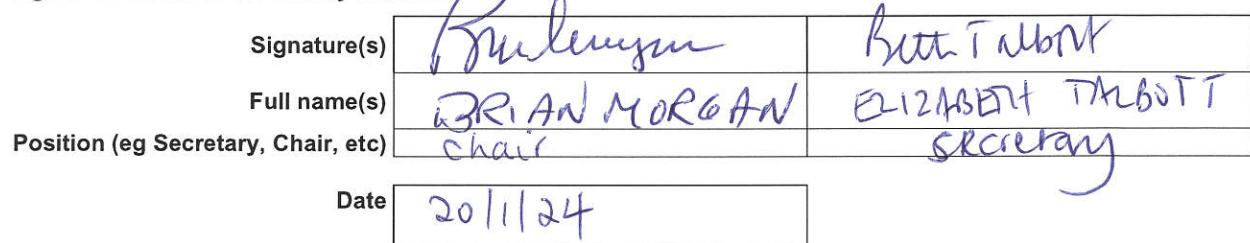 Signature(s) Beth Talbott
Full name(s) BRIAN MORGAN ELIZABETH TALBOTT
Position (eg Secretary, Chair, etc) Chair Secretary
Date 20/1/24